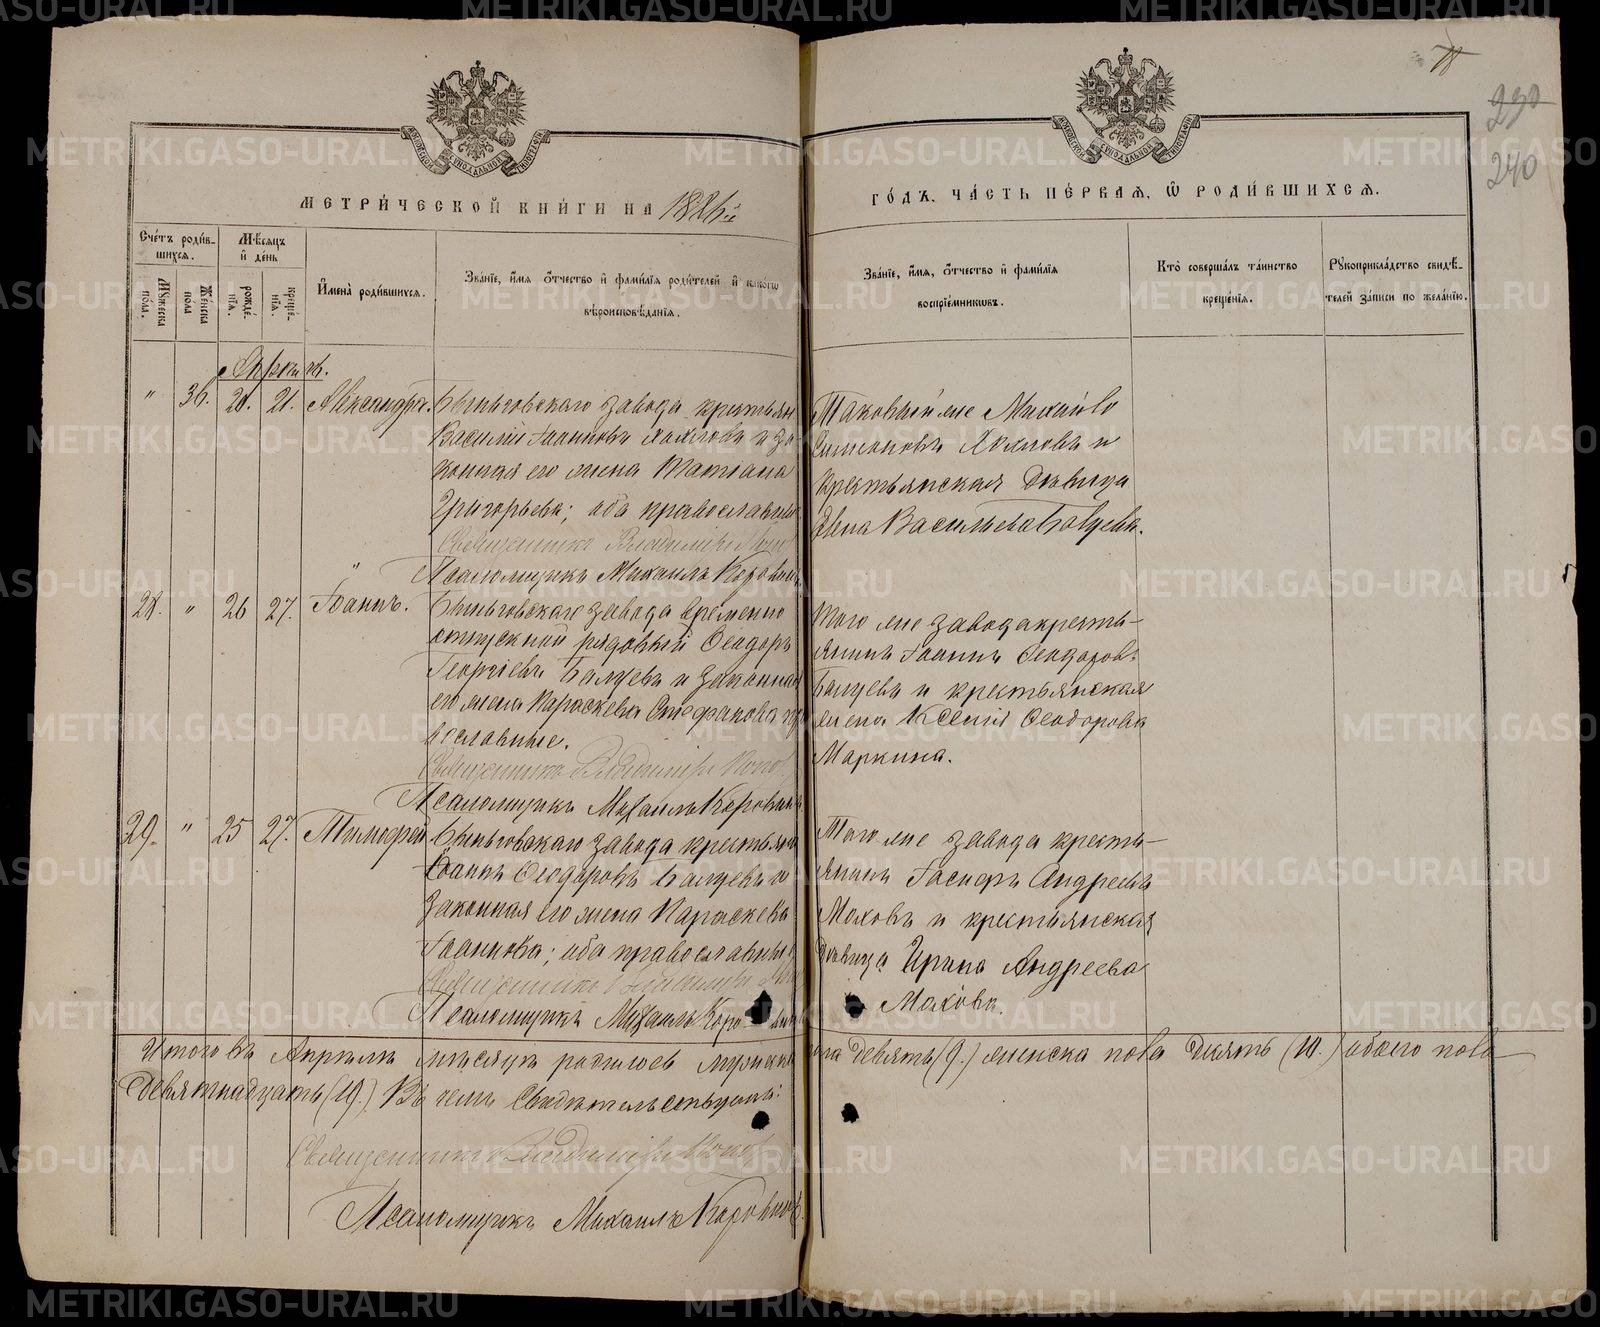 МЕТРИ́ЧЕСКОЙ КНИ́ГИ НА 1886й
ГО́ДЪ, ЧА́СТЬ ПЕ́РВАЯ, Ѡ РОДИ́ВШИХСЯ.
240
Счетъ роди́вшихся.
Му́жеска пола.
Же́нска пола
Мѣ́сяцъ и де́нь
рожде́нїя.
креще́нїя.
Имена̀ роди́вшихся.
Зва́нїе, и́мя ѻ́тчество и фами́лїя роди́телей и како́гѡ вѣроисповѣ́данїя.
Зва́нїе, и́мя, ѻ́тчество и фами́лїя воспрїе́мникѡвъ.
Кто̀ соверша́лъ та́инство креще́нїя.
Рукоприкла́дство свидѣ́телей за́писи по жела́нїю.
Апрель.
" 36. 20. 21. Александра. Быньговскаго завода крестьян
Василій Іоанновъ Хохловъ и за
конная его жена Татіана
Григорьева; оба православные
Священникъ Владиміръ Попов
Псаломщикъ Михаилъ Коровинъ
Таковый же Михаилъ
Симеоновъ Хохловъ и
крестьянская дѣвица
Анна Васильева
28. " 26 27. Іоаннъ. Быньговскаго завода временно
отпускной рядовый Ѳеодоръ
Георгіевъ Балуевъ и законная
его жена Параскева Стефанова пра
вославные.
Священникъ Владиміръ Попов
Псаломщикъ Михаилъ Коровинъ
Того же завода кресть-
янинъ Іоаннъ Ѳеодоровъ
Балуевъ и крестьянская
жена Ксенія Ѳеодорова
Маркина.
29. " 25 27. Тимофей Быньговскаго завода крестьянин
Іоаннъ Ѳеодоровъ Балуевъ и
законная его жена Параскева
Іоаннова; оба православные
Священникъ Владиміръ Попов
Псаломщикъ Михаилъ Коровинъ
Того же завода кресть-
янинъ Іосифъ Андреевъ
Моховъ и крестьянская
дѣвица Ирина Андреева
Мохова.
Итого въ Апрѣлѣ мѣсяцѣ родилось мужска пола девять (9.) женска пола десять (10.) обоего пола
девятнадцать (19.) Въ чемъ свидѣтельствуемъ:
Священникъ Владиміръ Попов
Псаломщикъ Михаилъ Коровинъ.
METRIKI.GASO-URAL.RU